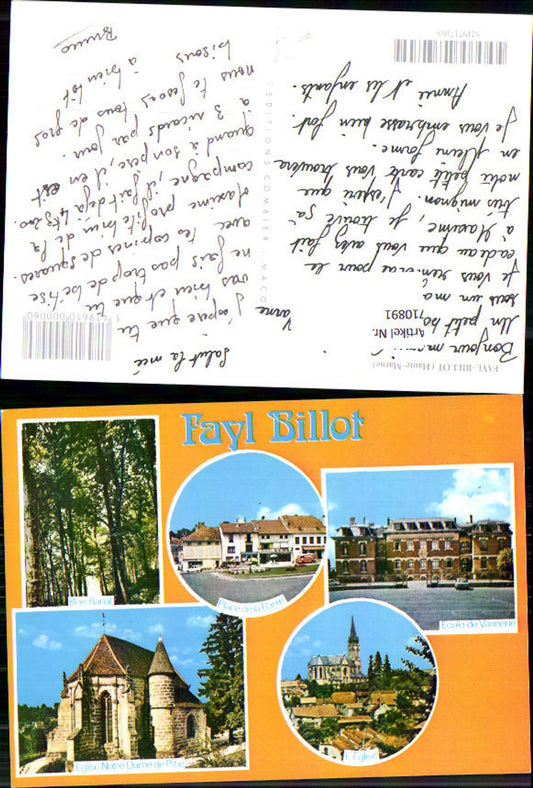 Bruno
bisous
à bientôt
nous te ferons tous de gros
à 3 ricards par jour.
quand à son père, il en est
campagne, il fait déjà 4kg200.
Maxime profite bien de la
avec tes copines de squares.
ne fais pas trop de bêtise
vas bien et que tu
J'espère que tu
Salut la mé
EDITIONS COMBIER MACON
Annie et les enfants.
Je vous embrasse bien fort.
en pleine forme.
notre petite carte vous trouvera
très mignon. J'espère que
à Maxime, je trouve ça
cadeau que vous avez fait
Je vous remercie pour le
Un petit
Bonjour
Vanne
Artikel Nr.
710891
FAYL-BILLOT (Haute-Marne)
Fayl Billot
Bois Banal
Place de la Barre
Ecole de Vannerie
Eglise Notre Dame de Pitié
L'Eglise